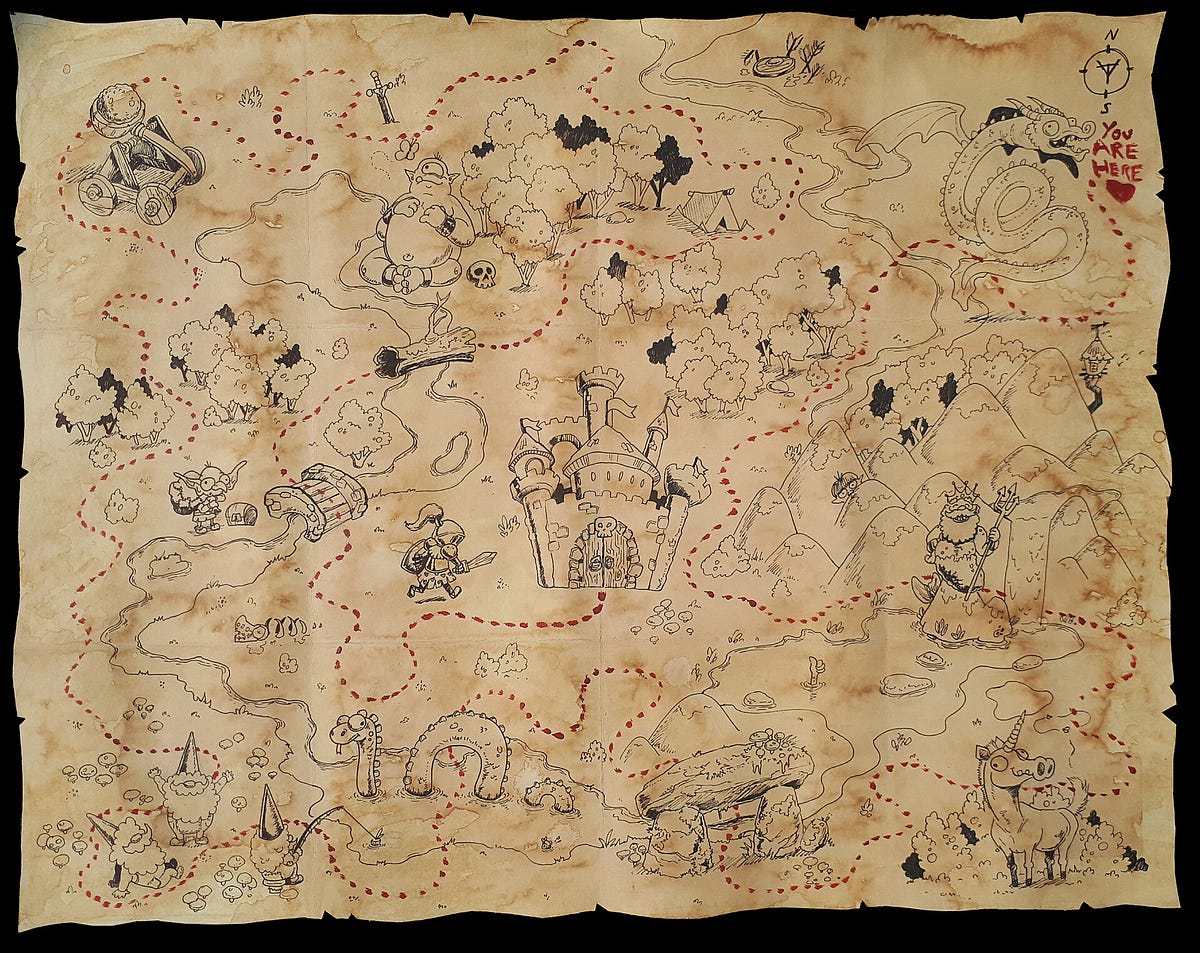 N
S
YOU
ARE
HERE